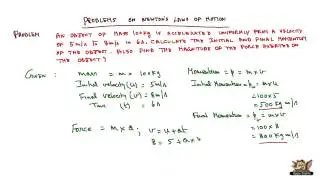 PROBLEMS ON NEWTON'S LAWS OF MOTION
PROBLEM AN OBJECT OF MASS 100kg IS ACCELERATED UNIFORMLY FROM A VELOCITY
OF 5m/s TO 8m/s IN 6s. CALCULATE THE INITIAL AND FINAL MOMENTUM
OF THE OBJECT. ALSO FIND THE MAGNITUDE OF THE FORCE EXERTED ON
THE OBJECT?
GIVEN: mass = m = 100kg
Initial velocity (u) = 5m/s
Final velocity (v) = 8m/s
Time (t) = 6s
Momentum = p = m x v
Initial Momentum = p = m x u
= 100x5
= 500 kg m/s
Final Momentum = p = m x v
= 100x8
= 800 kg m/s
Force = m x a; v = u + at
8 = 5 + a x